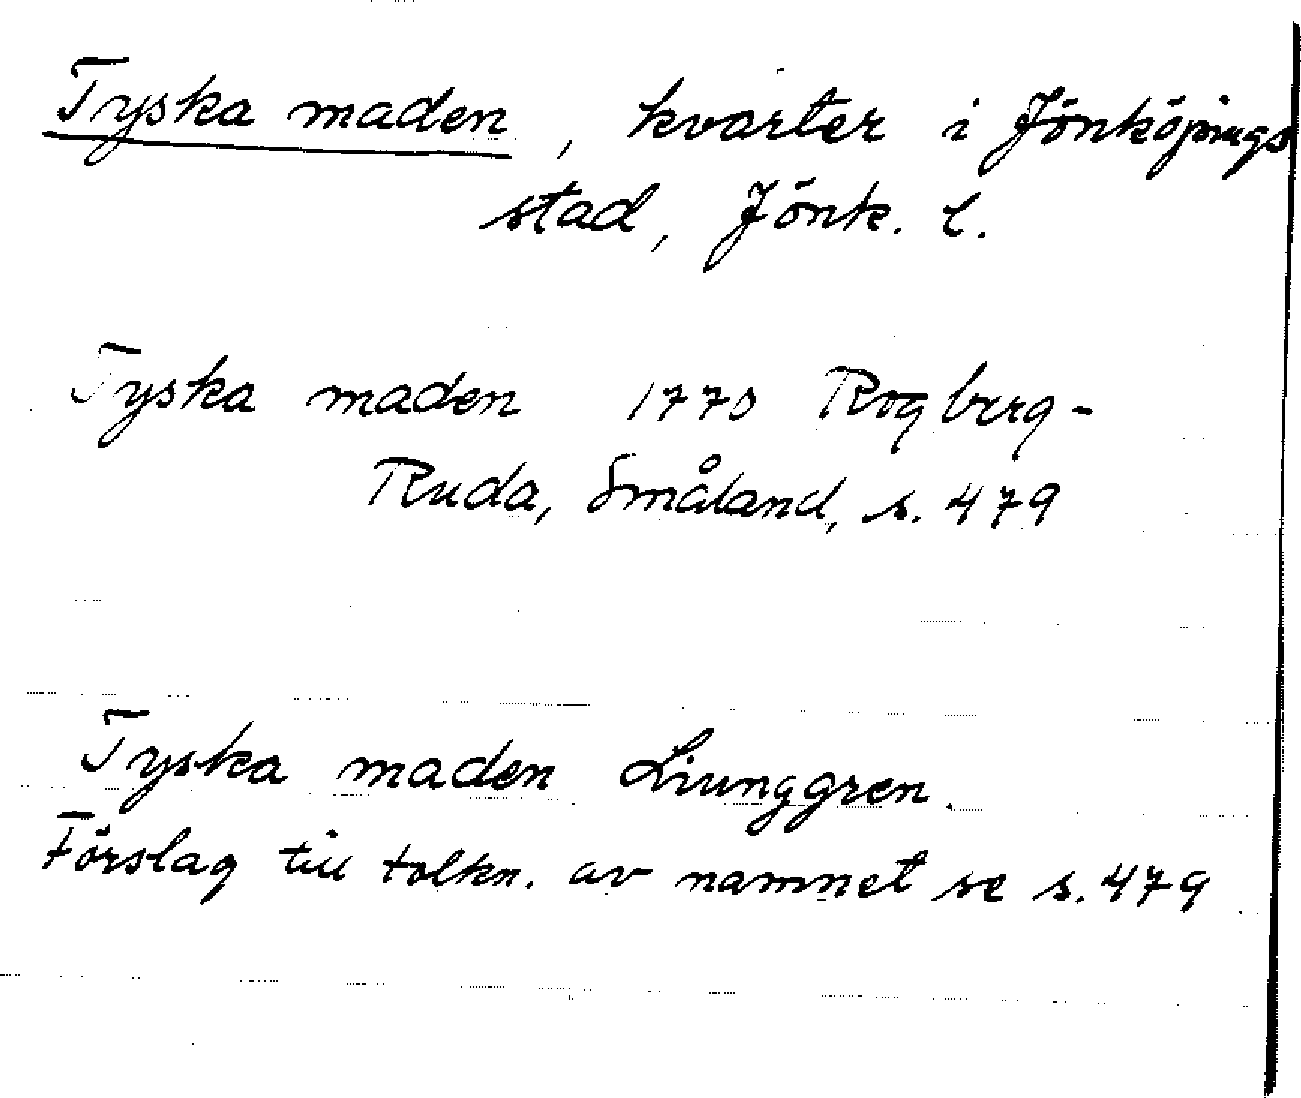 Tyska maden, kvarter i Jönköpings
stad, Jönk. l.
Tyska maden 1770 Rogberg-
Ruda, Småland, s. 479
Tyska maden Liunggren.
Förslag till tolkn. av namnet se s. 479